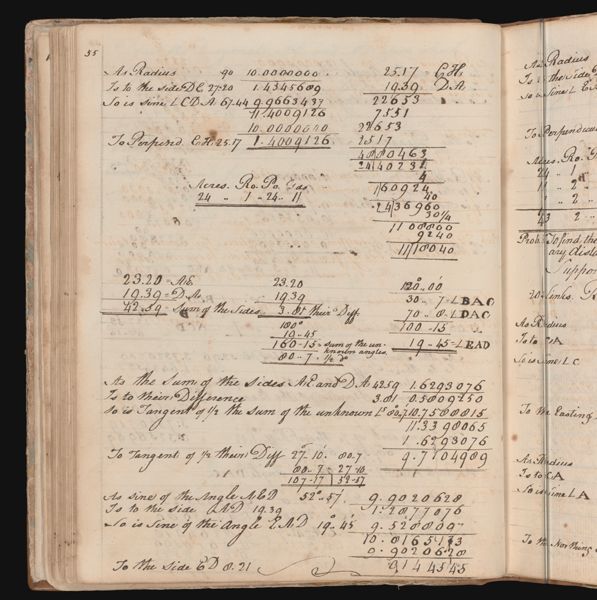 55
As Radius 90 10.0000000 25.17 EH.
Is to the side DE 27.20 1.4345689 19.39 DA
So is Sine LCDA 67.44 9.9663437 22653
11.4009126 7551
10.0000000 22653
To Perpend. EH. 25.17 1.4009126 2517
4880463
24|40231
4
Acres. Ro. Po. 1|60924
24 .. 1 .. 24 .. 11 40
24|36960
30 1/4
1108800
9240
11|18040
23.20 = AE 23.20 120°..00
19.39 = DA 19.39 30..7 L BAC
42.59 = Sum of the Sides 3.81 their Diff 70..8 L DAC
180° 100-15
19-45 19-45 L EAD
160-15 = Sum of the un-
known angles
80..7 1/2 Do
As the Sum of the sides AE and DA 42.59 1.6293076
Is to their Difference 3.81 0.5809250
So is Tangent of 1/2 the Sum of the unknown Ls 80.7 10.7588815
11.3398065
1.6293076
To Tangent of 1/2 their Diff 27°.10' 80.7 9.7104989
80..7 27-10
107-17 52-57
As Sine of the Angle AED 52°-57' 9.9020628
Is to the side AD 19.39 1.2877076
So is Sine of the Angle EAD 19°.45' 9.5288097
10.8165173
9.9020628
To the Side ED 8.21 0.9144545
As Radius
To Perpendicular
Acres. Ro.
24 .. 1
11 .. 2
.. 2
43 2
Prob. To find the
Suppor
20 Links.
As Radius
Is to CA
So is Sine L C
To the Easting
As Radius
Is to CA
So is Sine L A
To the Northing